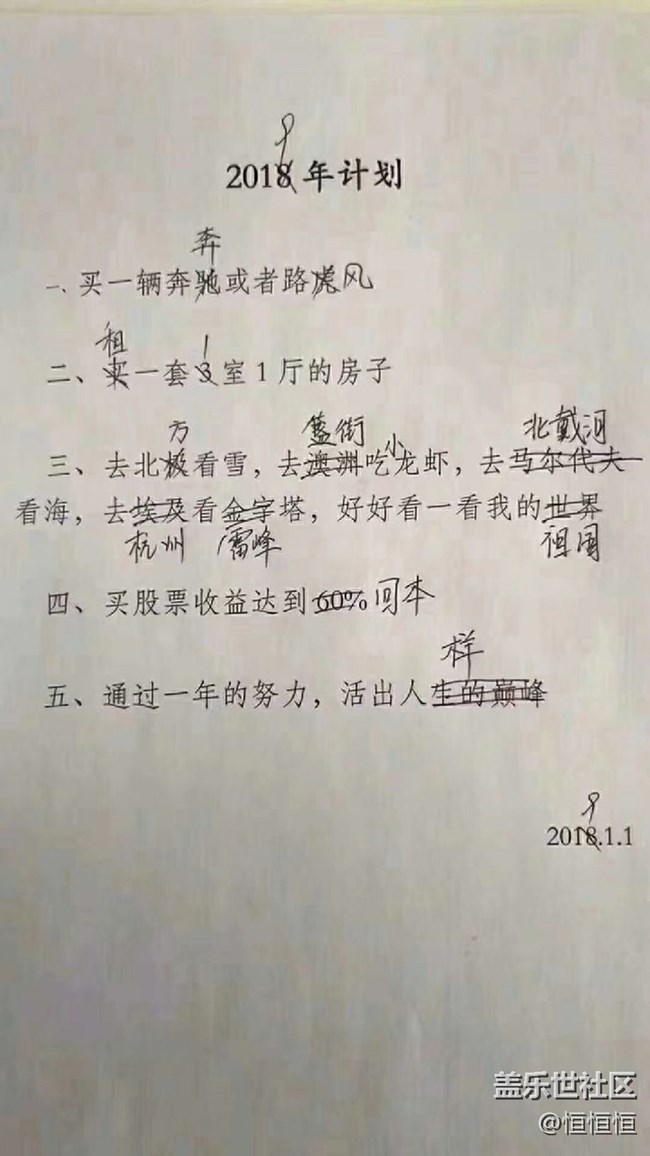 9
2018年计划
奔
一、买一辆奔驰或者路虎风
租 1
二、买一套3室1厅的房子
方 簋街 小 北戴河
三、去北极看雪，去澳洲吃龙虾，去马尔代夫
看海，去埃及看金字塔，好好看一看我的世界
杭州 雷峰 祖国
四、买股票收益达到60%回本
样
五、通过一年的努力，活出人生的巅峰
9
2018.1.1
盖乐世社区
@恒恒恒